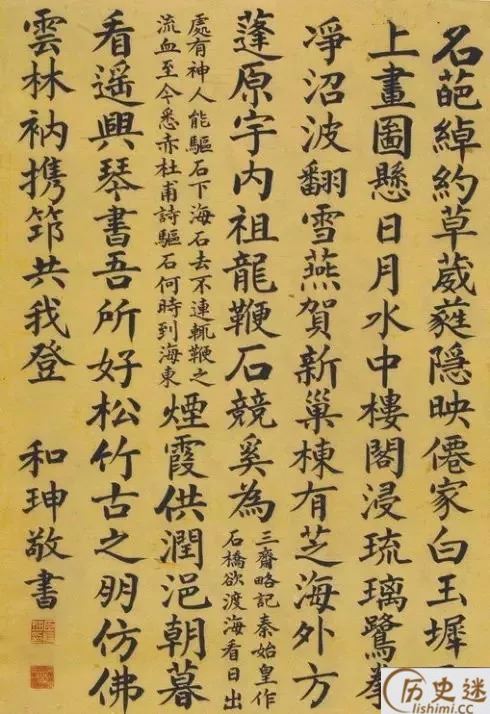 名葩綽約草葳蕤隱映僊家白玉墀
上畫圖懸日月水中樓閣浸琉璃鷺拳
凈沼波翻雪燕賀新巢棟有芝海外方
蓬原宇内祖龍鞭石競奚為
三齋略記秦始皇作
石橋欲渡海看日出
處有神人能驅石下海石去不連輒鞭之
流血至今悉赤杜甫詩驅石何時到海東
煙霞供潤浥朝暮
看遥興琴書吾所好松竹古之朋仿佛
雲林衲携筇共我登
和珅敬書
历史迷
lishimi.cc